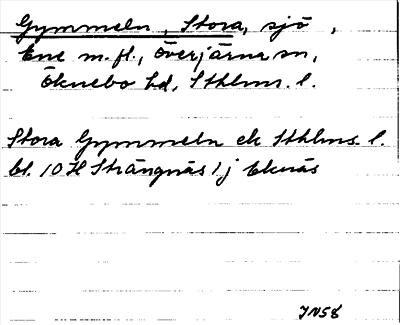 Gymmeln, Stora, sjö,
Ene m.fl., Överjärna sn,
Öknebo hd, Sthlms. l.
Stora Gymmeln ek Sthlms. l.
bl. 10 H Strängnäs 1 j Eknäs
JN58